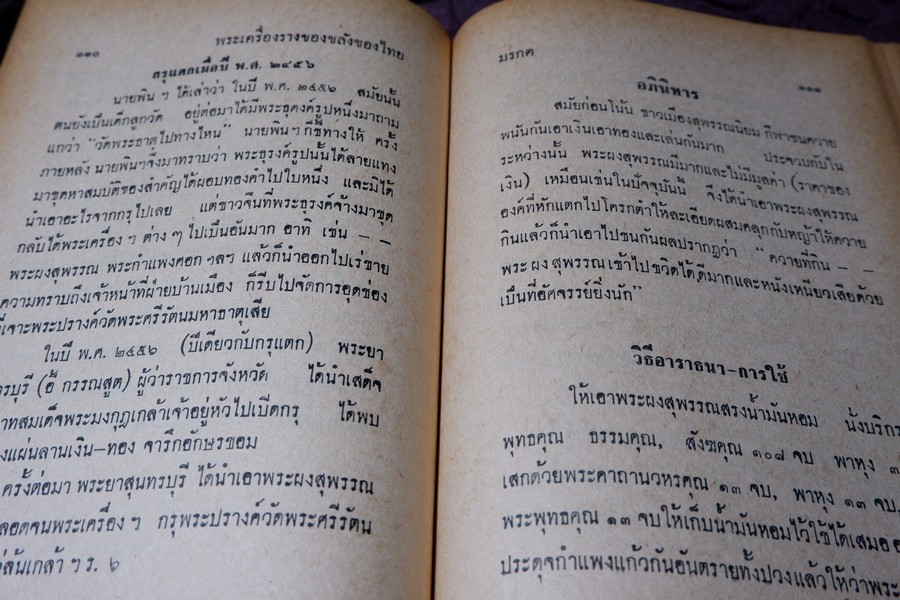 ๑๑๐ พระเครื่องรางของขลังของไทย
กรุแตกเมื่อปี พ.ศ. ๒๔๕๖
นายพิน ฯ ได้เล่าว่า ในปี พ.ศ. ๒๔๕๖ สมัยนั้น
ตนยังเป็นเด็กลูกวัด อยู่ต่อมาได้มีพระธุดงค์รูปหนึ่งมาถาม
แกว่า “วัดพระธาตุไปทางไหน” นายพินฯ ก็ชี้ทางให้ ครั้ง
ภายหลัง นายพินฯจึงมาทราบว่า พระธุรงค์รูปนั้นได้ลายแทง
มาขุดหาสมบัติของสำคัญได้ผอบทองคำไปใบหนึ่ง และมิได้
นำเอาอะไรจากกรุไปเลย แต่ชาวจีนที่พระธุรงค์จ้างมาขุด
กลับได้พระเครื่อง ฯ ต่าง ๆ ไปเป็นอันมาก อาทิ เช่น – –
พระผงสุพรรณ พระกำแพงศอก ฯลฯ แล้วก็นำออกไปเร่ขาย
ความทราบถึงเจ้าหน้าที่ฝ่ายบ้านเมือง ก็รีบไปจัดการอุดช่อง
ที่เจาะพระปรางค์วัดพระศรีรัตนมหาธาตุเสีย
ในปี พ.ศ. ๒๔๕๖ (ปีเดียวกับกรุแตก) พระยา
(อี๋ กรรณสูต) ผู้ว่าราชการจังหวัด ได้นำเสด็จ
สมเด็จพระมงกุฎเกล้าเจ้าอยู่หัวไปเปิดกรุ ได้พบ
แผ่นลานเงิน–ทอง จารึกอักษรขอม
ครั้งต่อมา พระยาสุนทรบุรี ได้นำเอาพระผงสุพรรณ
ตลอดจนพระเครื่อง ฯ กรุพระปรางค์วัดพระศรีรัตน
ล้นเกล้า ฯ ร. ๖
มรกต ๑๑๑
อภินิหาร
สมัยก่อนโน้น ชาวเมืองสุพรรณนิยม กีฬาชนควาย
พนันกันเอาเงินเอาทองและเล่นกันมาก ประจวบกับใน
ระหว่างนั้น พระผงสุพรรณมีมากและไม่มีมูลค่า (ราคาของ
เงิน) เหมือนเช่นในปัจจุบันนี้ จึงได้นำเอาพระผงสุพรรณ
องค์ที่หักแตกไปโครกตำให้ละเอียดผสมคลุกกับหญ้าให้ควาย
กินแล้วก็นำเอาไปชนกันผลปรากฏว่า “ ควายที่กิน – –
พระ ผง สุพรรณเข้าไปขวิดได้ดีมากและหนังเหนียวเสียด้วย
เป็นที่อัศจรรย์ยิ่งนัก”
วิธีอาราธนา–การใช้
ให้เอาพระผงสุพรรณสรงน้ำมันหอม นั่งบริกร
พุทธคุณ ธรรมคุณ, สังฆคุณ ๑๐๘ จบ พาหุง
เสกด้วยพระคาถานวหรคุณ ๑๓ จบ, พาหุง ๑๓ จบ
พระพุทธคุณ ๑๓ จบให้เก็บน้ำมันหอมไว้ใช้ได้เสมอ
ประดุจกำแพงแก้วกันอันตรายทั้งปวงแล้วให้ว่าพระ